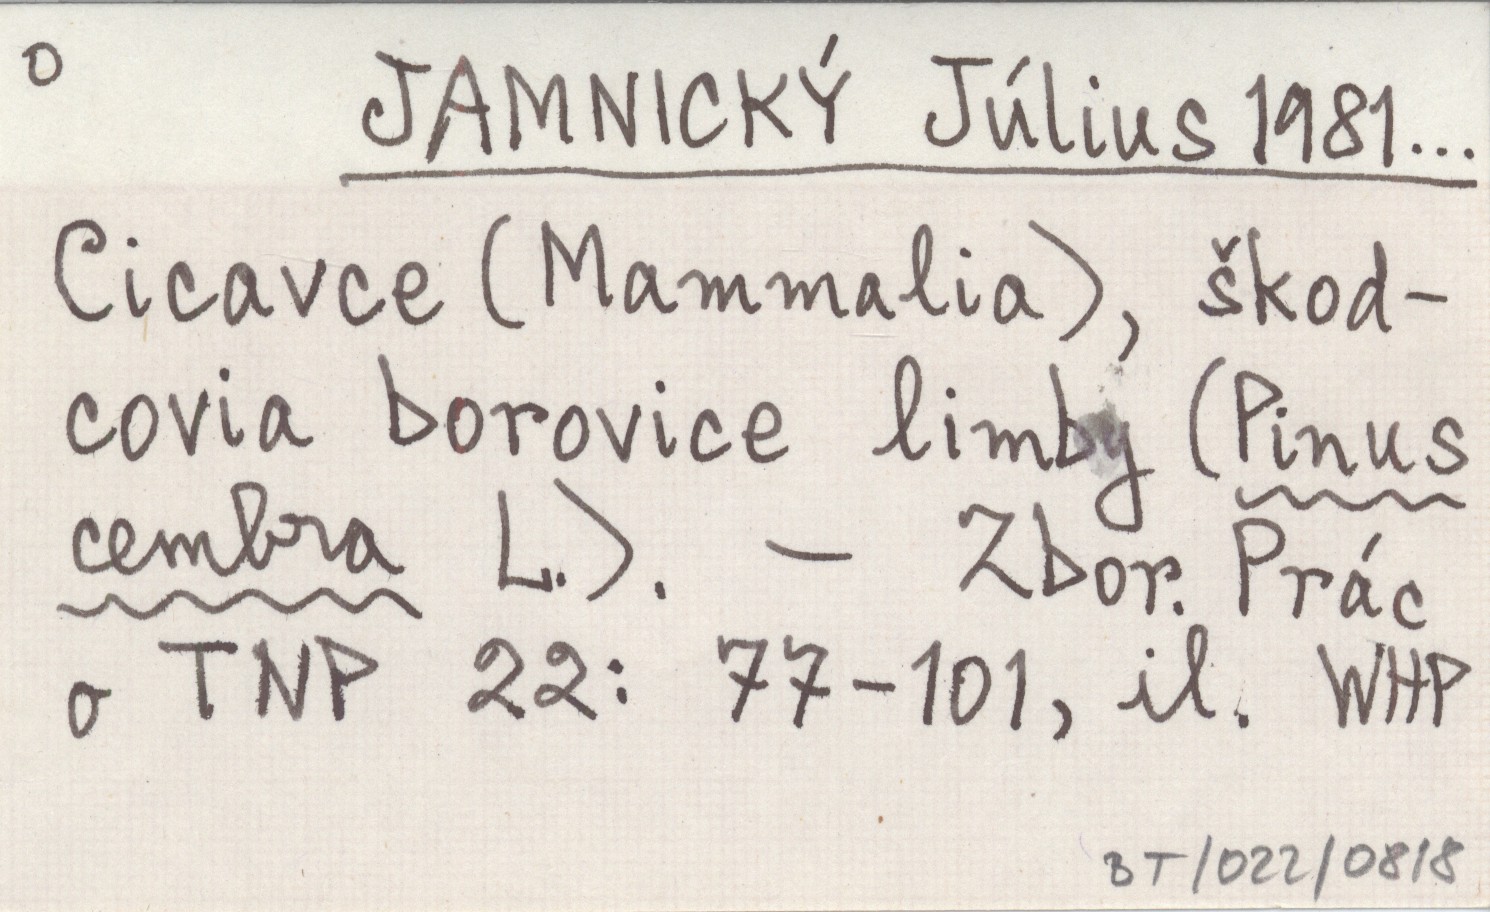 O
JAMNICKÝ Július 1981...
Cicavce (Mammalia), škod-
covia borovice limby (Pinus
cembra L.). — Zbor. Prác
o TNP 22: 77-101, il. WHP
BT/022/0818